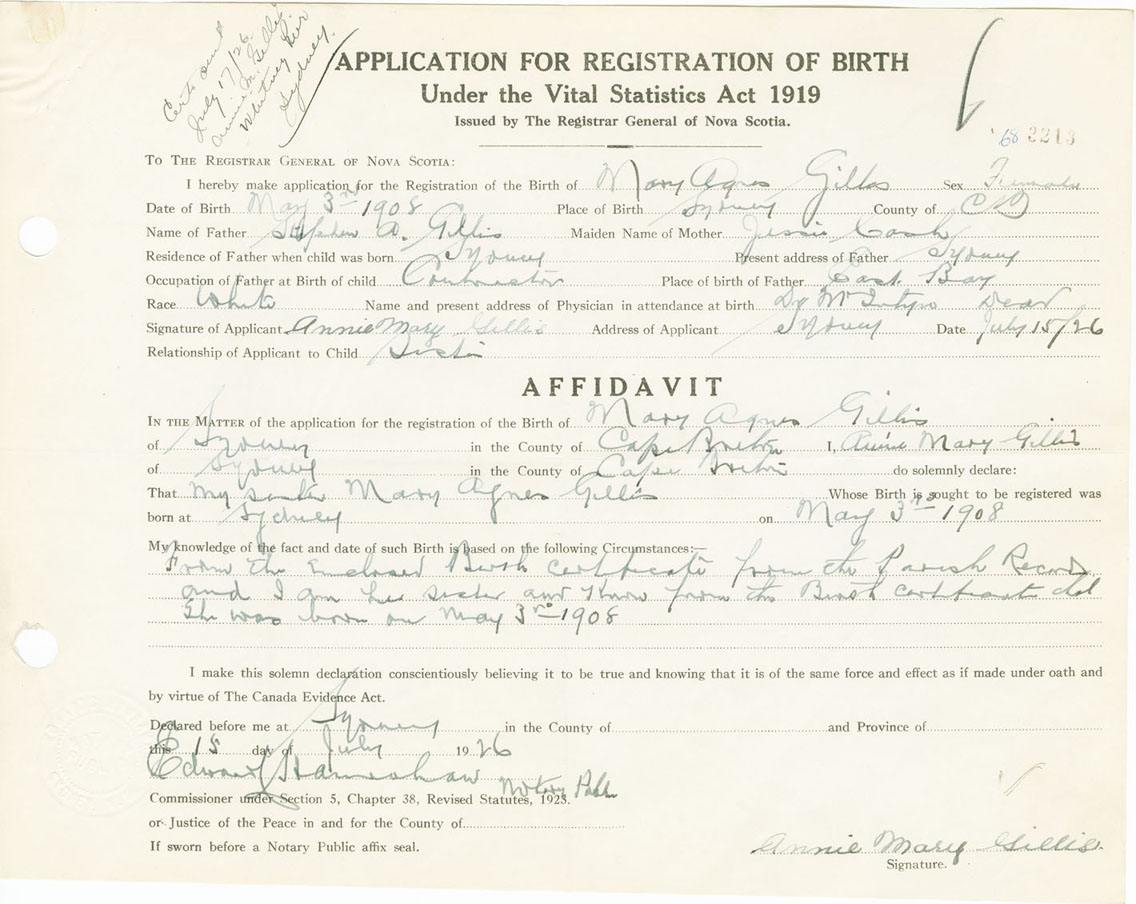 Certs sent
July 17/26
Annie M. Gillis
Whitney Pier
Sydney.
APPLICATION FOR REGISTRATION OF BIRTH
Under the Vital Statistics Act 1919
Issued by The Registrar General of Nova Scotia.
68 3213
TO THE REGISTRAR GENERAL OF NOVA SCOTIA:
I hereby make application for the Registration of the Birth of Mary Agnes Gillis Sex Female
Date of Birth May 3rd 1908 Place of Birth Sydney County of C B
Name of Father Stephen A. Gillis Maiden Name of Mother Jessie Cash
Residence of Father when child was born Sydney Present address of Father Sydney
Occupation of Father at Birth of child Contractor Place of birth of Father East Bay
Race White Name and present address of Physician in attendance at birth Dr McIntyre Dead
Signature of Applicant Annie Mary Gillis Address of Applicant Sydney Date July 15/26
Relationship of Applicant to Child Sister
AFFIDAVIT
IN THE MATTER of the application for the registration of the Birth of Mary Agnes Gillis
of Sydney in the County of Cape Breton I, Annie Mary Gillis
of Sydney in the County of Cape Breton do solemnly declare:
That My sister Mary Agnes Gillis Whose Birth is sought to be registered was
born at Sydney on May 3rd 1908
My knowledge of the fact and date of such Birth is based on the following Circumstances:—
From the Enclosed Birth certificate from the Parish Record
and I am her sister and know from the Birth certificate that
She was born on May 3rd 1908
I make this solemn declaration conscientiously believing it to be true and knowing that it is of the same force and effect as if made under oath and
by virtue of The Canada Evidence Act.
Declared before me at Sydney in the County of and Province of
this 15 day of July 1926
Edward Hanrahan Notary Public
Commissioner under Section 5, Chapter 38, Revised Statutes, 1923.
or Justice of the Peace in and for the County of
If sworn before a Notary Public affix seal.
Annie Mary Gillis
Signature.